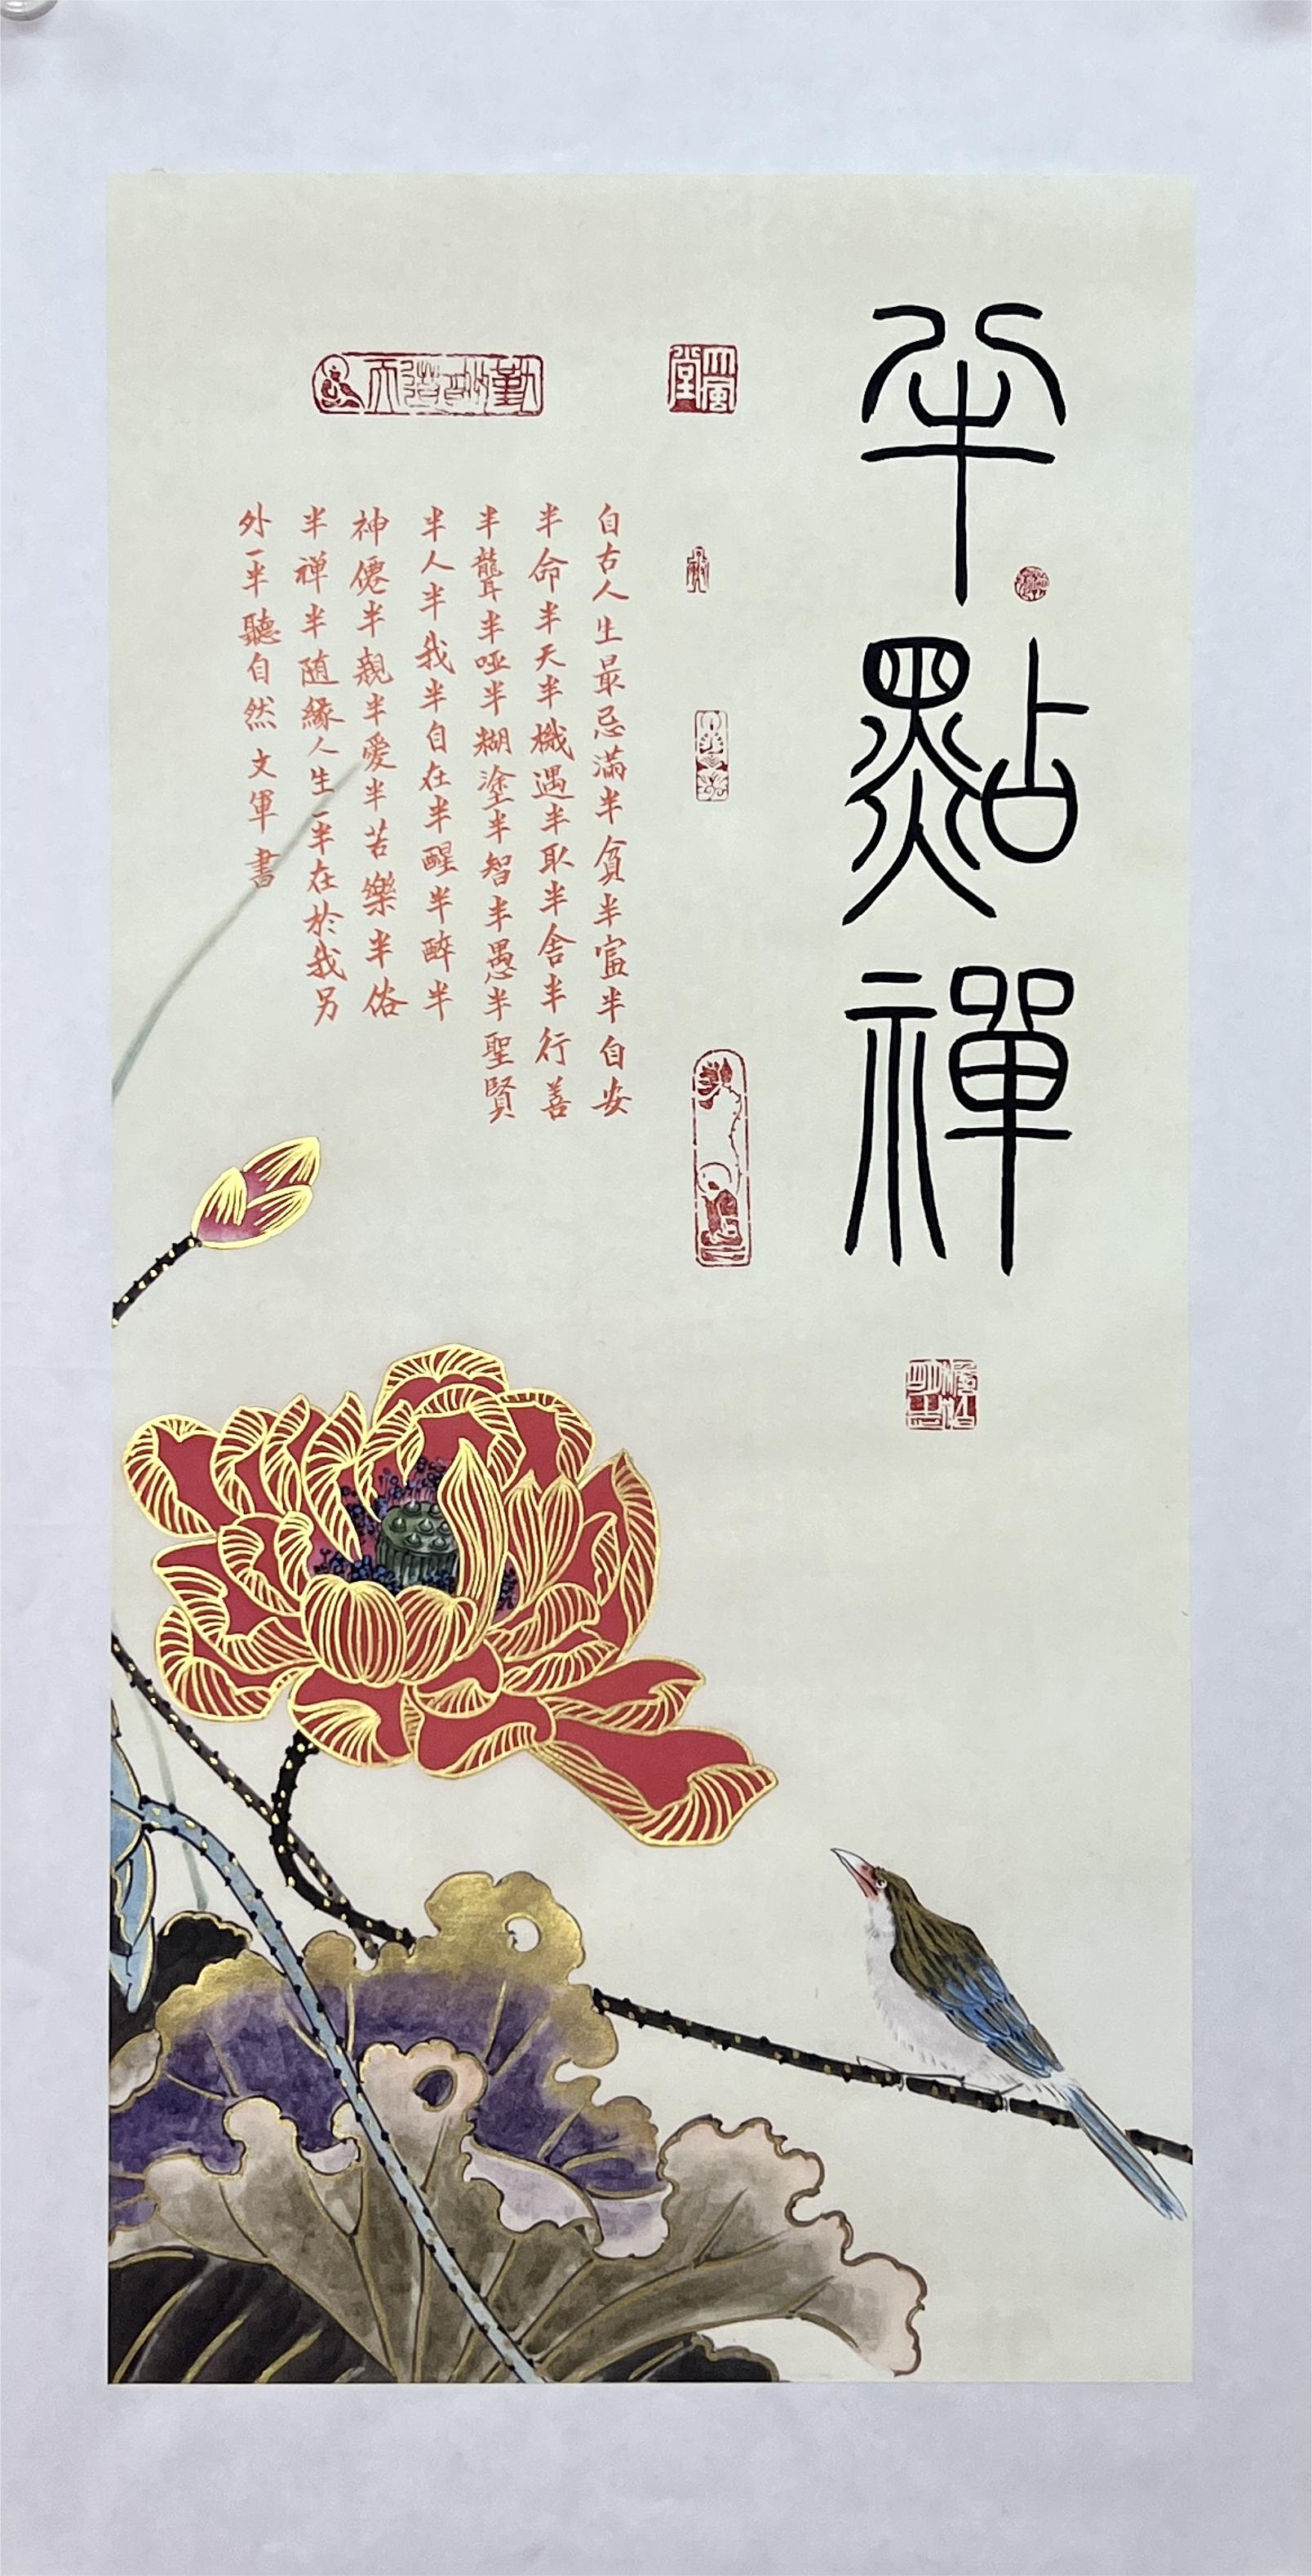 半點禪
自古人生最忌滿半貧半富半自安
半命半天半機遇半取半舍半行善
半聾半啞半糊塗半智半愚半聖賢
半人半我半自在半醒半醉半
神僊半親半愛半苦樂半俗
半禅半随緣人生一半在於我另
外一半聽自然文軍書
大風堂
天道酬勤